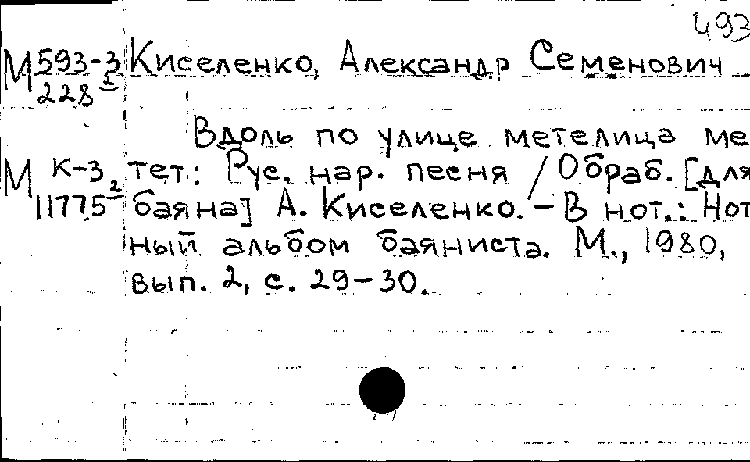 493
М 593-3 Киселенко, Александр Семенович
228 5
Вдоль по улице метелица ме
М К-3 тет: Рус. нар. песня / Обраб. [для
11775 2 баяна] А. Киселенко. – В нот.: Нот
ный альбом баяниста. М., 1980,
вып. 2, с. 29–30.